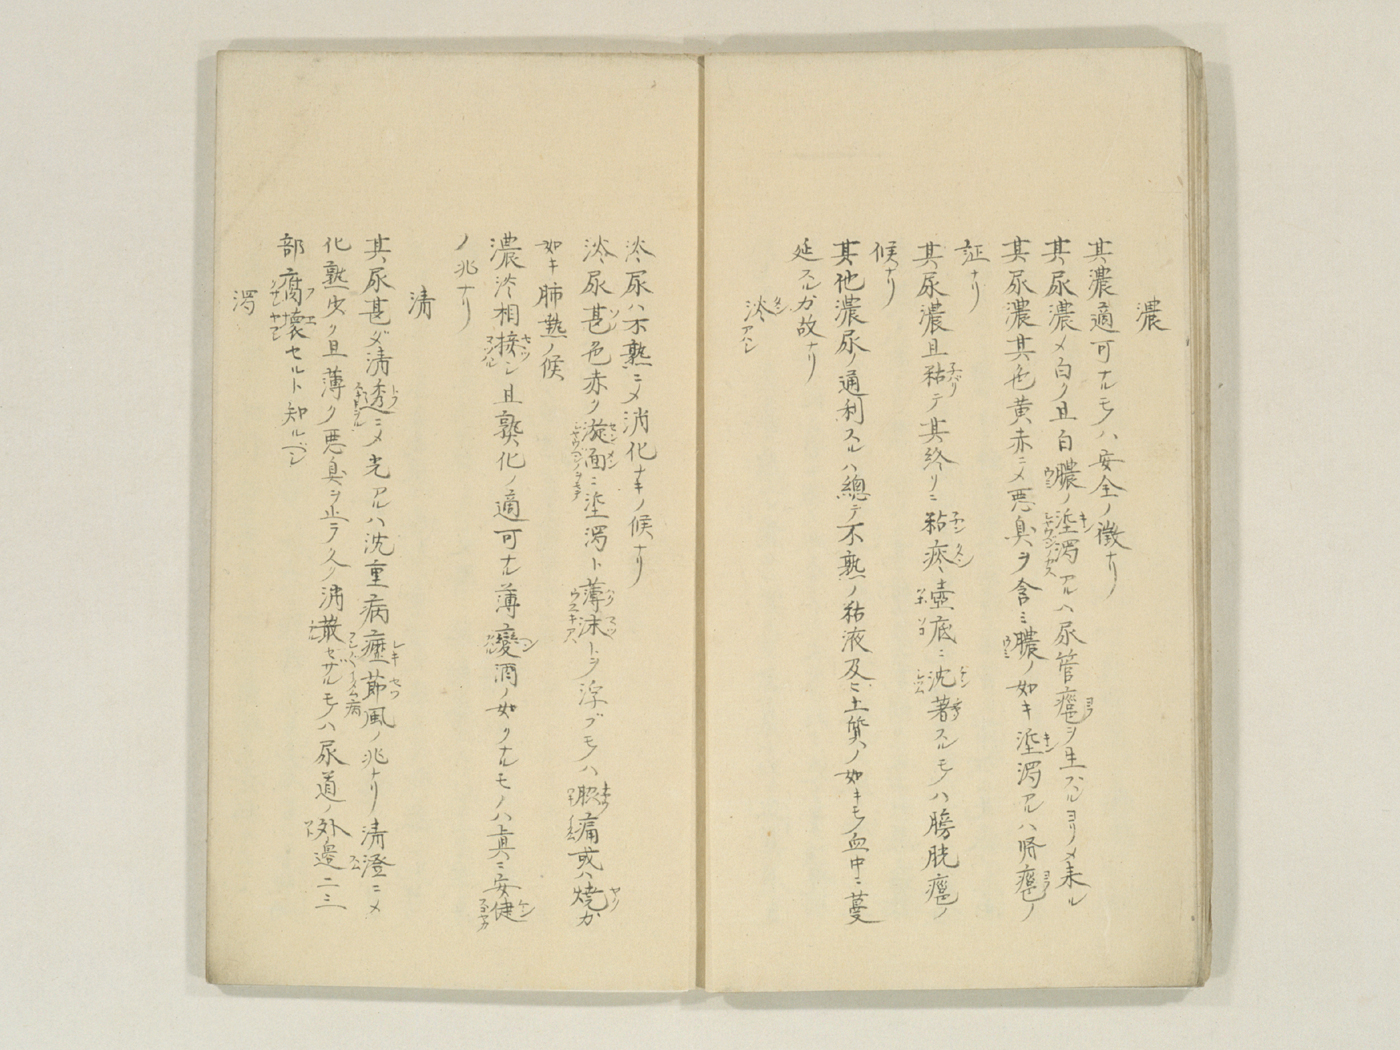 濃
其濃適可ナルモノハ安全ノ徴ナリ
其尿濃メ白ク且白膿ノ垽濁アルハ尿管癰ヲ生スルヨリノメ来ル
其尿濃其色黄赤ニメ悪臭ヲ含ミ膿ノ如キ垽濁アルハ腎癰ノ
証ナリ
其尿濃且粘テ其終リニ粘疼壺底ニ沈著スルモノハ膀胱癰ノ
候ナリ
其他濃尿ノ通利スルハ總テ不熟ノ粘液及ビ土質ノ如キモノ血中ニ蔓
延スルカ故ナリ
淡
淡尿ハ不熟ニメ消化ナキノ候ナリ
淡尿甚色赤ク漩面ニ垽濁ト薄沫トヲ浮ブモノハ腋痛或ハ焼カ
如キ肺熱ノ候
濃淡相接シ且熟化ノ適可ナル薄變酒ノ如クナルモノハ真ニ安健
ノ兆ナリ
清
其尿甚ダ清透ニメ光アルハ沈重病瘂節風ノ兆ナリ清澄ニメ
化熟少ク且薄ク悪臭ヲ止ラ久ク消散セザルモノハ尿道ノ外邊二三
部腐壊セルト知ルベシ
濁